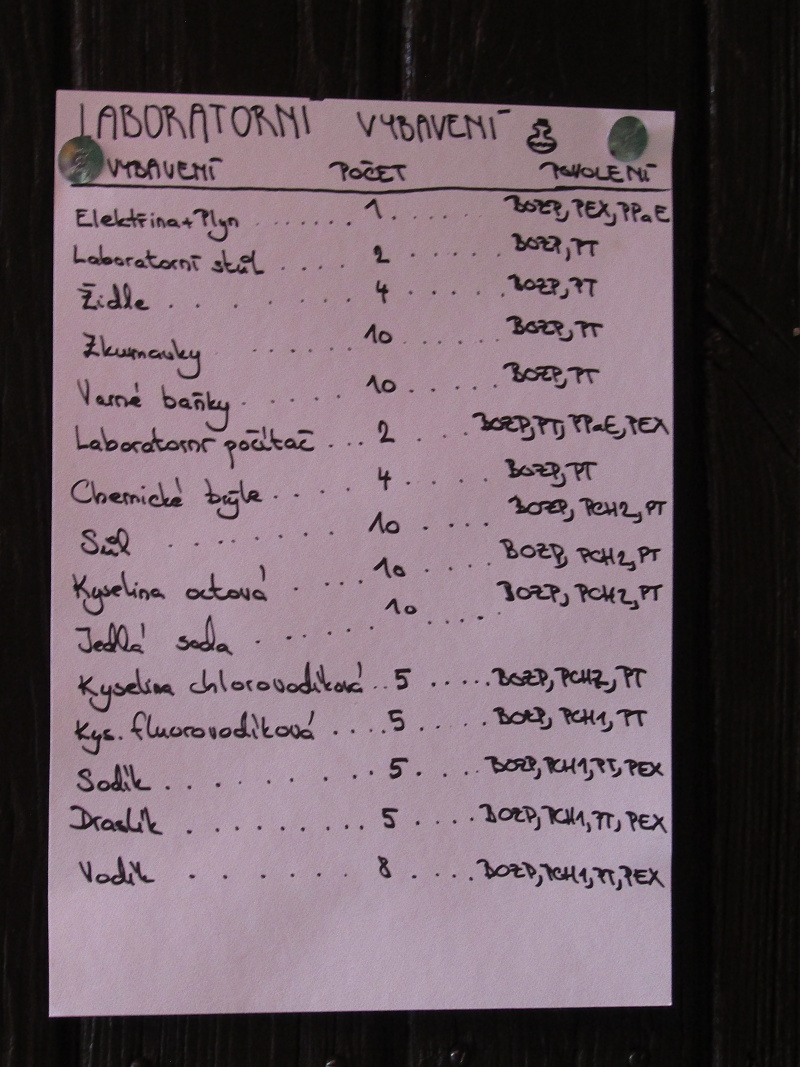 LABORATORNI VYBAVENÍ
VYBAVENÍ POČET POVOLENÍ
Elektřina+Plyn ........ 1 ...... BOZP, PEX, PPaE
Laboratorní stůl .... 2 ..... BOZP, PT
Židle . . . . . . . 4 ..... BOZP, PT
Zkumavky ...... 10 ..... BOZP, PT
Varné baňky ..... 10 ..... BOZP, PT
Laboratorní počítač ... 2 ... BOZP, PT, PPaE, PEX
Chemické brýle .... 4 .... BOZP, PT
Sůl ........ 10 .... BOZP, PCH2, PT
Kyselina octová .... 10 .... BOZP, PCH2, PT
Jedlá soda ...... 10 .... BOZP, PCH2, PT
Kyselina chlorovodíková .. 5 ..... BOZP, PCH2, PT
Kys. fluorovodíková .... 5 .... BOZP, PCH1, PT
Sodík ........ 5 .... BOZP, PCH1, PT, PEX
Draslík ......... 5 .... BOZP, PCH1, PT, PEX
Vodík . . . . . . 8 .... BOZP, PCH1, PT, PEX